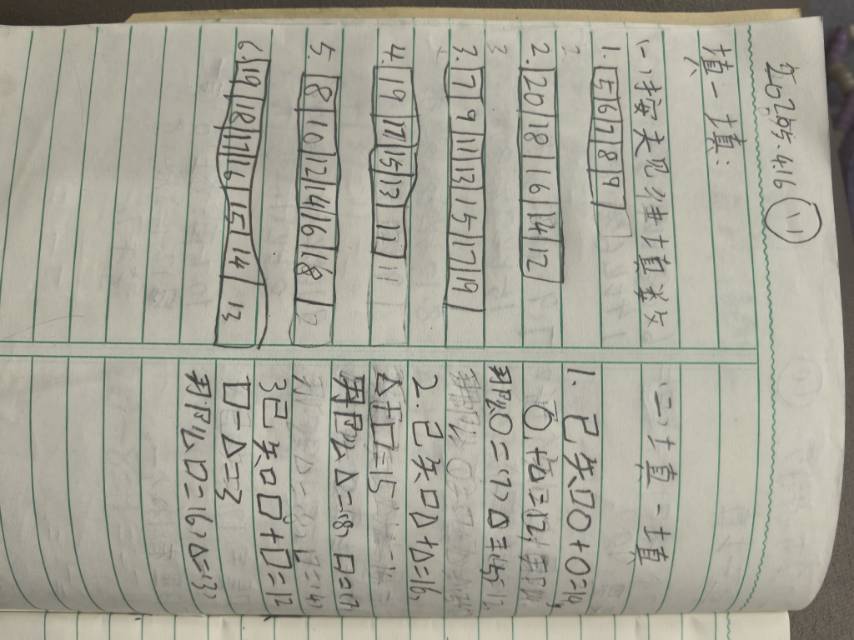 2025.4.16 (11)
填一填:
(一)按规律填数
1. 5 6 7 8 9
2. 20 18 16 14 12
3
3. 7 9 11 13 15 17 19
4. 19 17 15 13 11
5. 8 10 12 14 16 18
6. 19 18 17 16 15 14 13
(二)填一填
1. 已知○+○=14,
○+△=12,
那么○=(7)△=(5)
2. 已知△+△=16,
△+□=15
那么△=(8),□=(7)
3 已知□+□=12
□-△=3
那么□=(6),△=(3)